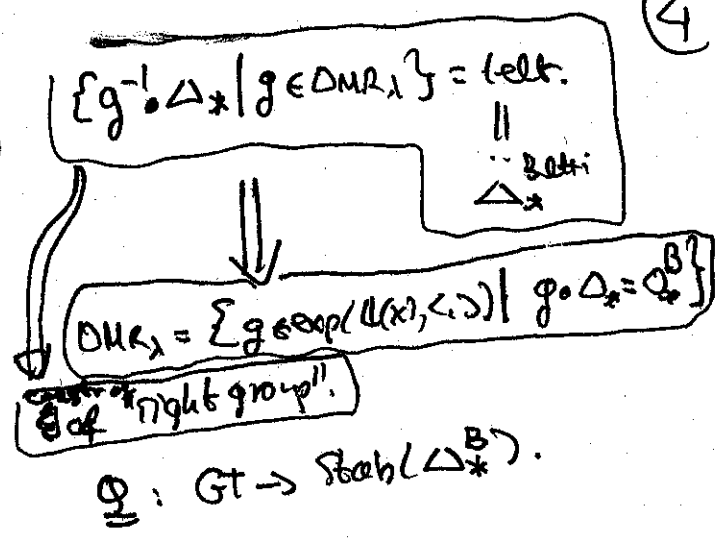 4
{g⁻¹•Δ_* | g ∈ DMR_λ} = 1 elt.
||
Betti
Δ_*
DMR_λ = {g ∈ exp(𝕃(X), <,>) | g•Δ_* = Δ_*^B}
of "right group".
Q: GT → Stab(Δ_*^B).